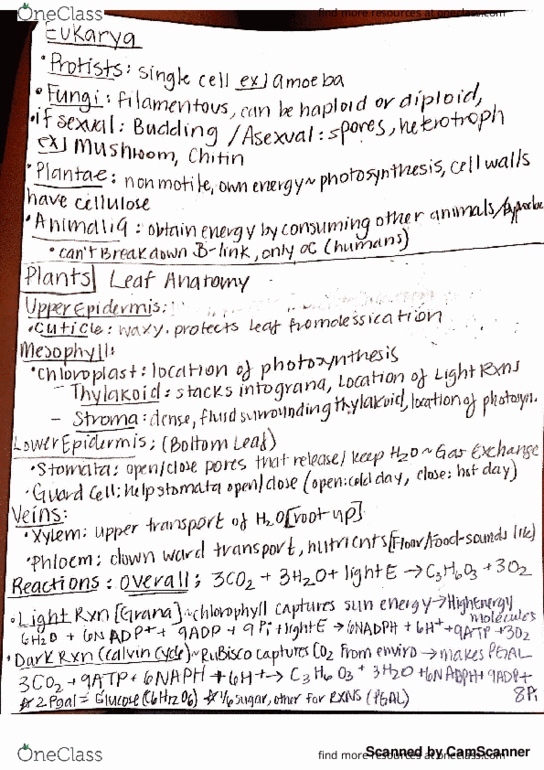 OneClass
find more resources at oneclass.com
Eukarya
• Protists: single cell ex) amoeba
• Fungi: filamentous, can be haploid or diploid,
• if sexual: Budding / Asexual: spores, hetrotroph
ex) Mushroom, Chitin
• Plantae: nonmotile, own energy~ photosynthesis, cell walls
have cellulose
• Animalia: obtain energy by consuming other animals/
• can't Breakdown B-link, only (humans)
Plants| Leaf Anatomy
Upper Epidermis:
• Cuticle: waxy. protects leaf from dessication
Mesophyll:
• Chloroplast: location of photosynthesis
- Thylakoid: stacks into grana, Location of Light Rxns
- Stroma: dense, fluid surrounding thylakoid, location of photosyn.
Lower Epidermis: (Bottom Leaf)
• Stomata: open/close pores that release/keep H2O ~ Gas Exchange
• Guard Cell: help stomata open/close (open: cold day, close: hot day)
Veins:
• Xylem: upper transport of H2O [root-up]
• Phloem: downward transport, nutrients [Floor/Food-sounds like]
Reactions: overall: 3CO2 + 3H2O + light E → C3H6O3 + 3O2
• Light Rxn [Grana] ~ chlorophyll captures sun energy → High Energy molecules
6H2O + 6NADP+ + 9ADP + 9Pi + light E → 6NADPH + 6H+ + 9ATP + 3O2
• Dark Rxn (Calvin Cycle) ~ RuBisco captures CO2 from enviro → makes PGAL
3CO2 + 9ATP + 6NAPH + 6H+ → C3H6O3 + 3H2O + 6NADPH + 9ADP + 8Pi
2 Pgal = Glucose (C6H12O6) 1/6 sugar, other for RXNS (PGAL)
OneClass
find more resources at oneclass.com
Scanned by CamScanner